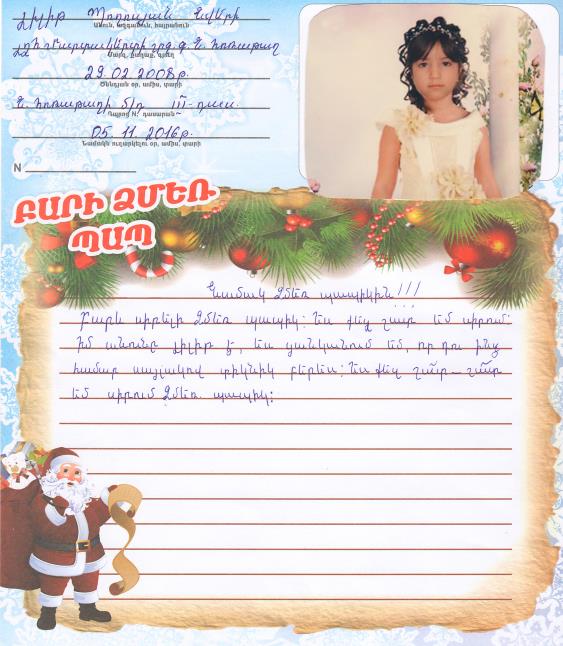 Լիլիթ Պողոսյան Էվերի
Անուն, Ազգանուն, հայրանուն
ԼՂՀ Մարտակերտի շրջ. գ. Ն. Հոռաթաղ
Մարզ, քաղաք, գյուղ
29.02.2008թ.
Ծննդյան օր, ամիս, տարի
Ն. Հոռաթաղի մ/դ III-դաս.
Դպրոց N: դասարան
05.11.2016թ.
Նամակն ուղարկելու օր, ամիս, տարի
N
ԲԱՐԻ ՁՄԵՌ
ՊԱՊ
Նամակ Ձմեռ պապիկին!!!
Բարև սիրելի Ձմեռ պապիկ: Ես քեզ շատ եմ սիրում:
Իմ անունը Լիլիթ է, ես ցանկանում եմ, որ դու ինձ
համար սայլակով տիկնիկ բերես: Ես քեզ շա՜տ-շա՜տ
եմ սիրում Ձմեռ պապիկ: